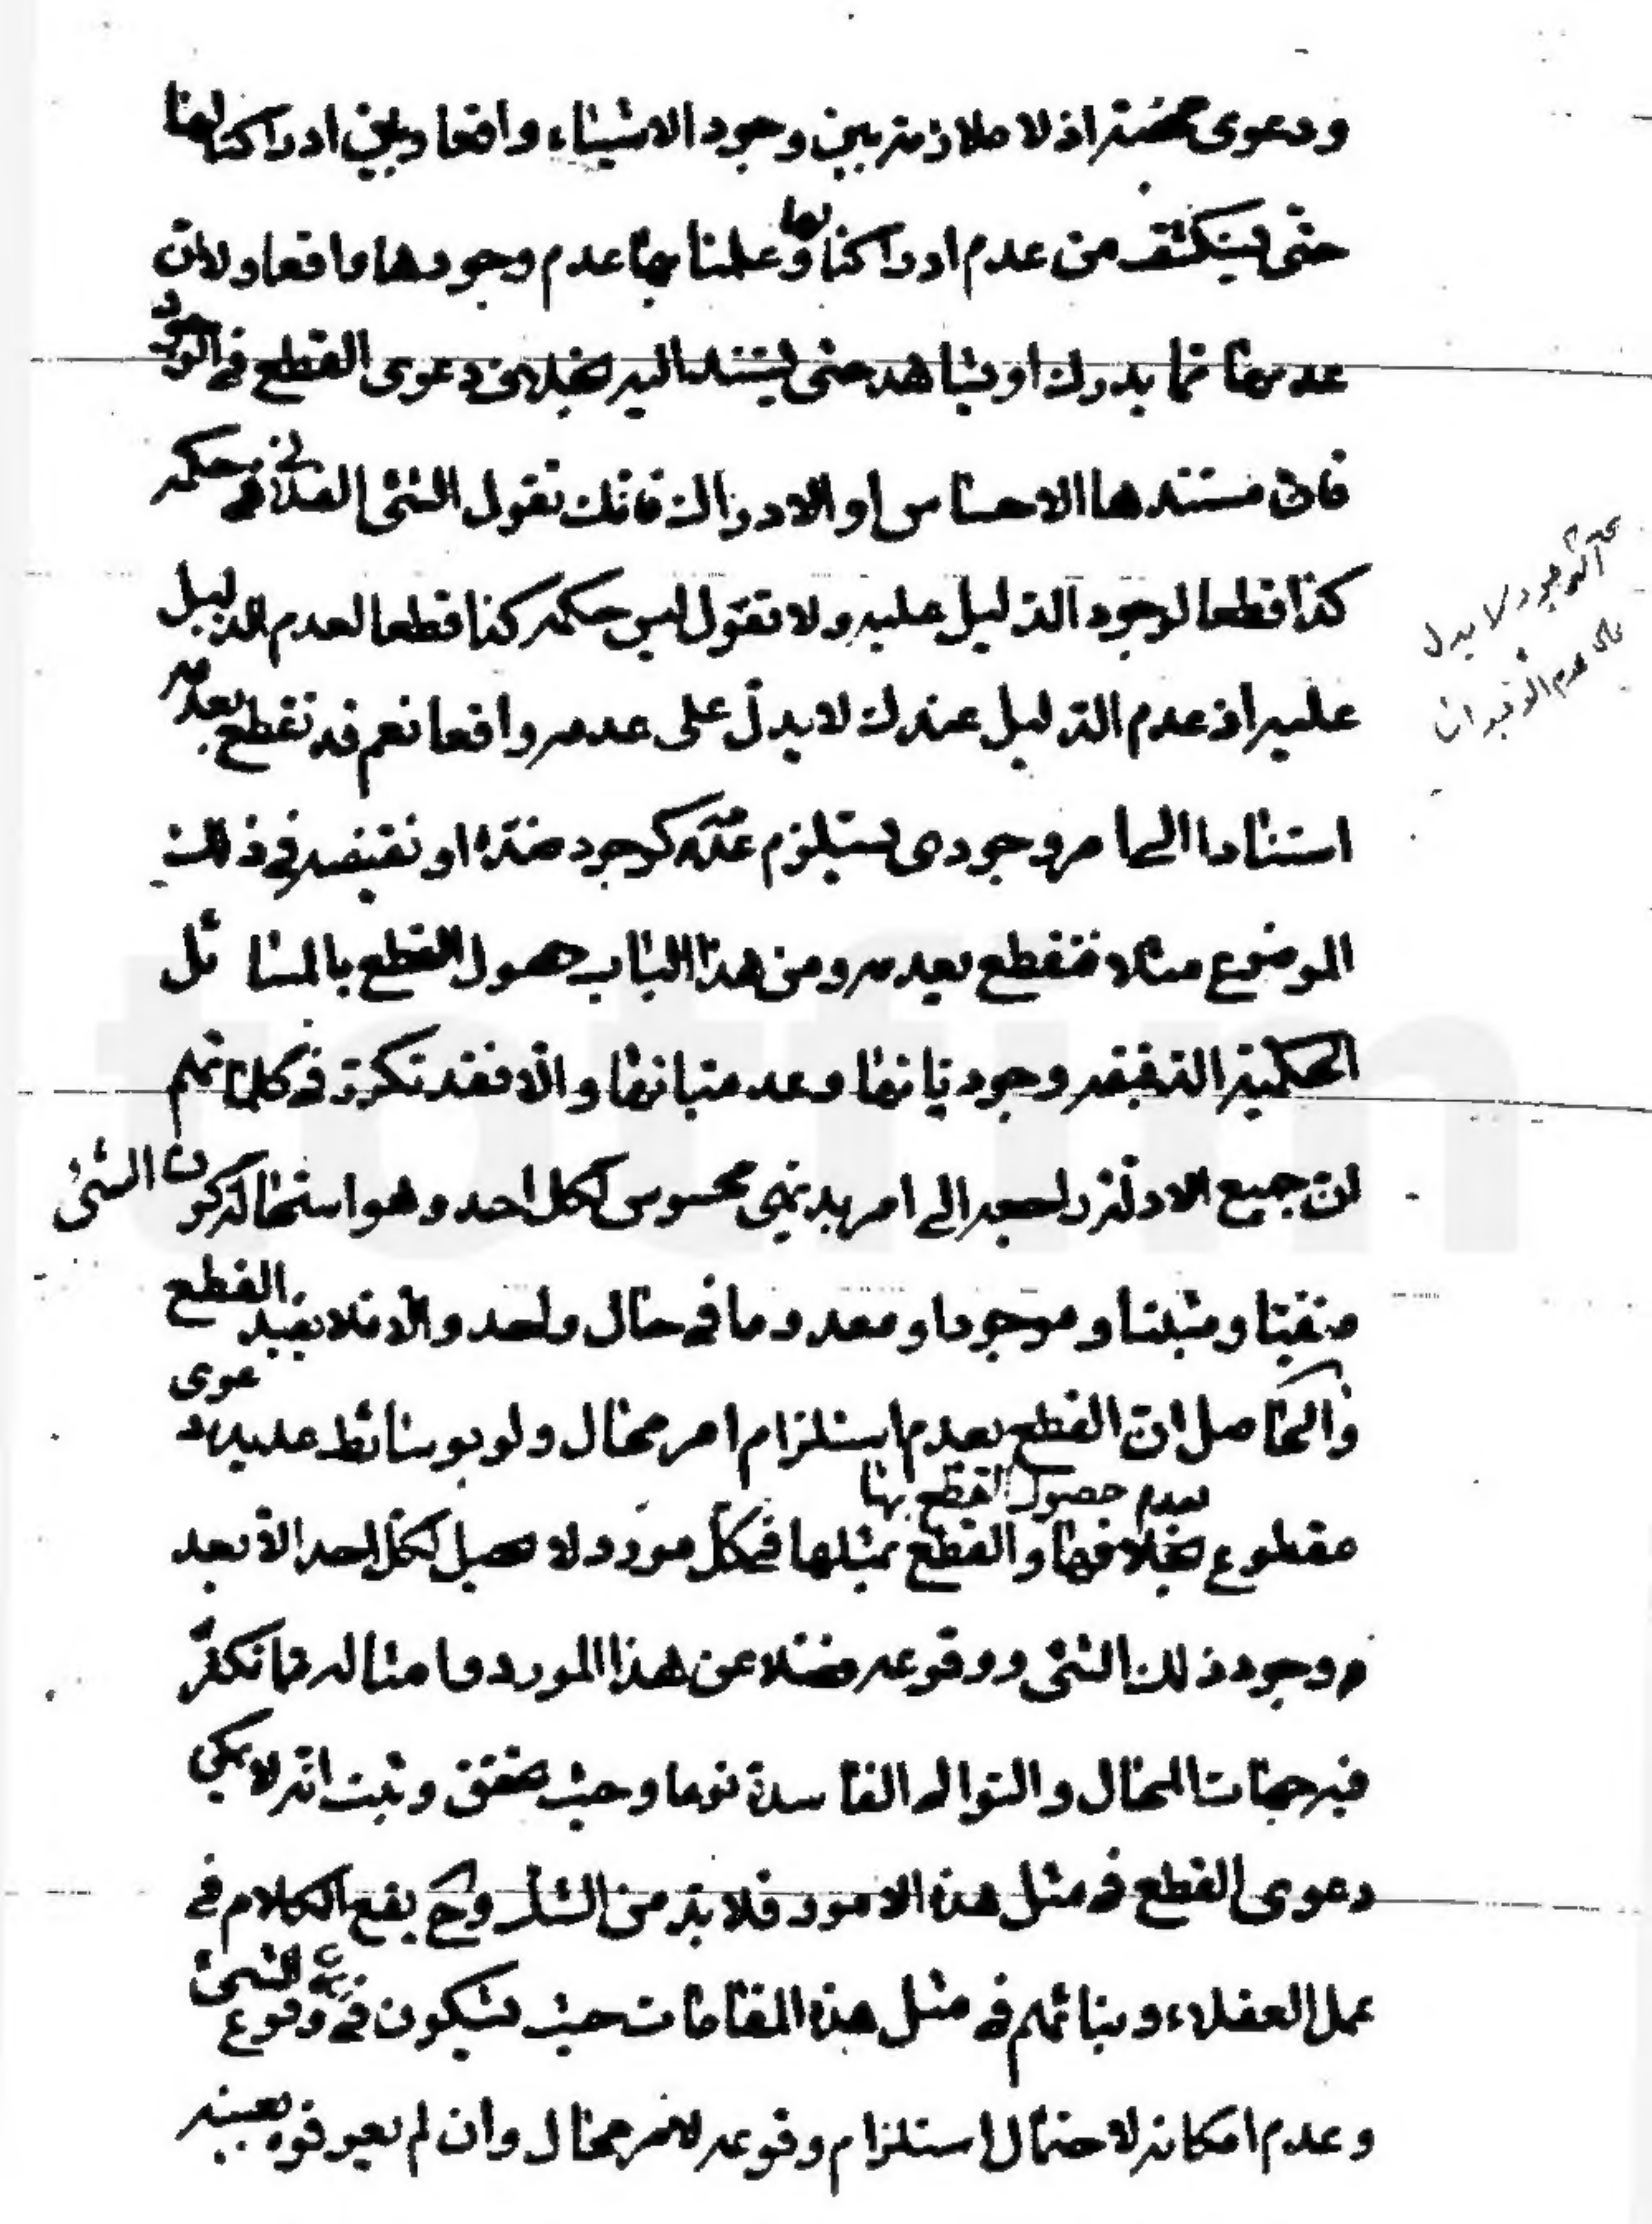 ودعوى محضة اذ لا ملازمة بين وجود الاشياء واقعا وبين ادراكنا لها
حتى يستكشف من عدم ادراكنا لها وعلمنا بها عدم وجودها واقعا ولان
عدمها مما يدرك او يشاهد حتى يستند اليه بخلاف دعوى القطع في الوجود
فان مستندها الاحساس او الادراك فانك تقول الشئ الفلاني حكمه
كذا قطعا لوجود الدليل عليه ولا تقول ليس حكمه كذا قطعا لعدم الدليل
عليه اذ عدم الدليل عندك لا يدل على عدمه واقعا نعم قد تقطع بعدمه
استنادا الى امر وجودي يستلزم عدمه كوجود ضده او نقيضه في ذلك
الموضوع مثلا فتقطع بعدمه ومن هذا الباب حصول القطع بالمسائل
الحكمية الدقيقة وجودياتها وعدمياتها والا فقد تكرر في كلماتهم
ان جميع الادلة راجعة الى امر بديهي محسوس لكل احد وهو استحالة كون الشئ
منفيا ومثبتا وموجودا ومعدوما في حال واحد والا فلا يفيد القطع
والحاصل ان القطع بعدم استلزام امر محال ولو بوسائط عديدة دعوى
مقطوع بخلافها والقطع بمثلها في كل مورد لا يحصل لكل احد الا بعد
بعدم حصول القطع بها
وجود ذلك الشئ ووقوعه فضلا عن هذا المورد وامثاله مما تكثر
فيه جهات المحال والتوالي الفاسدة نوعا وحيث تحقق وثبت انه لا يمكن
دعوى القطع في مثل هذه الامور فلا بد من الشك وح يقع الكلام في
عمل العقلاء وبنائهم في مثل هذه المقامات حيث يشكون في وقوع الشئ
وعدم امكانه لاحتمال استلزام وقوعه لامر محال وان لم يعرفوه بعينه
لا يدل
على عدم الوجدان